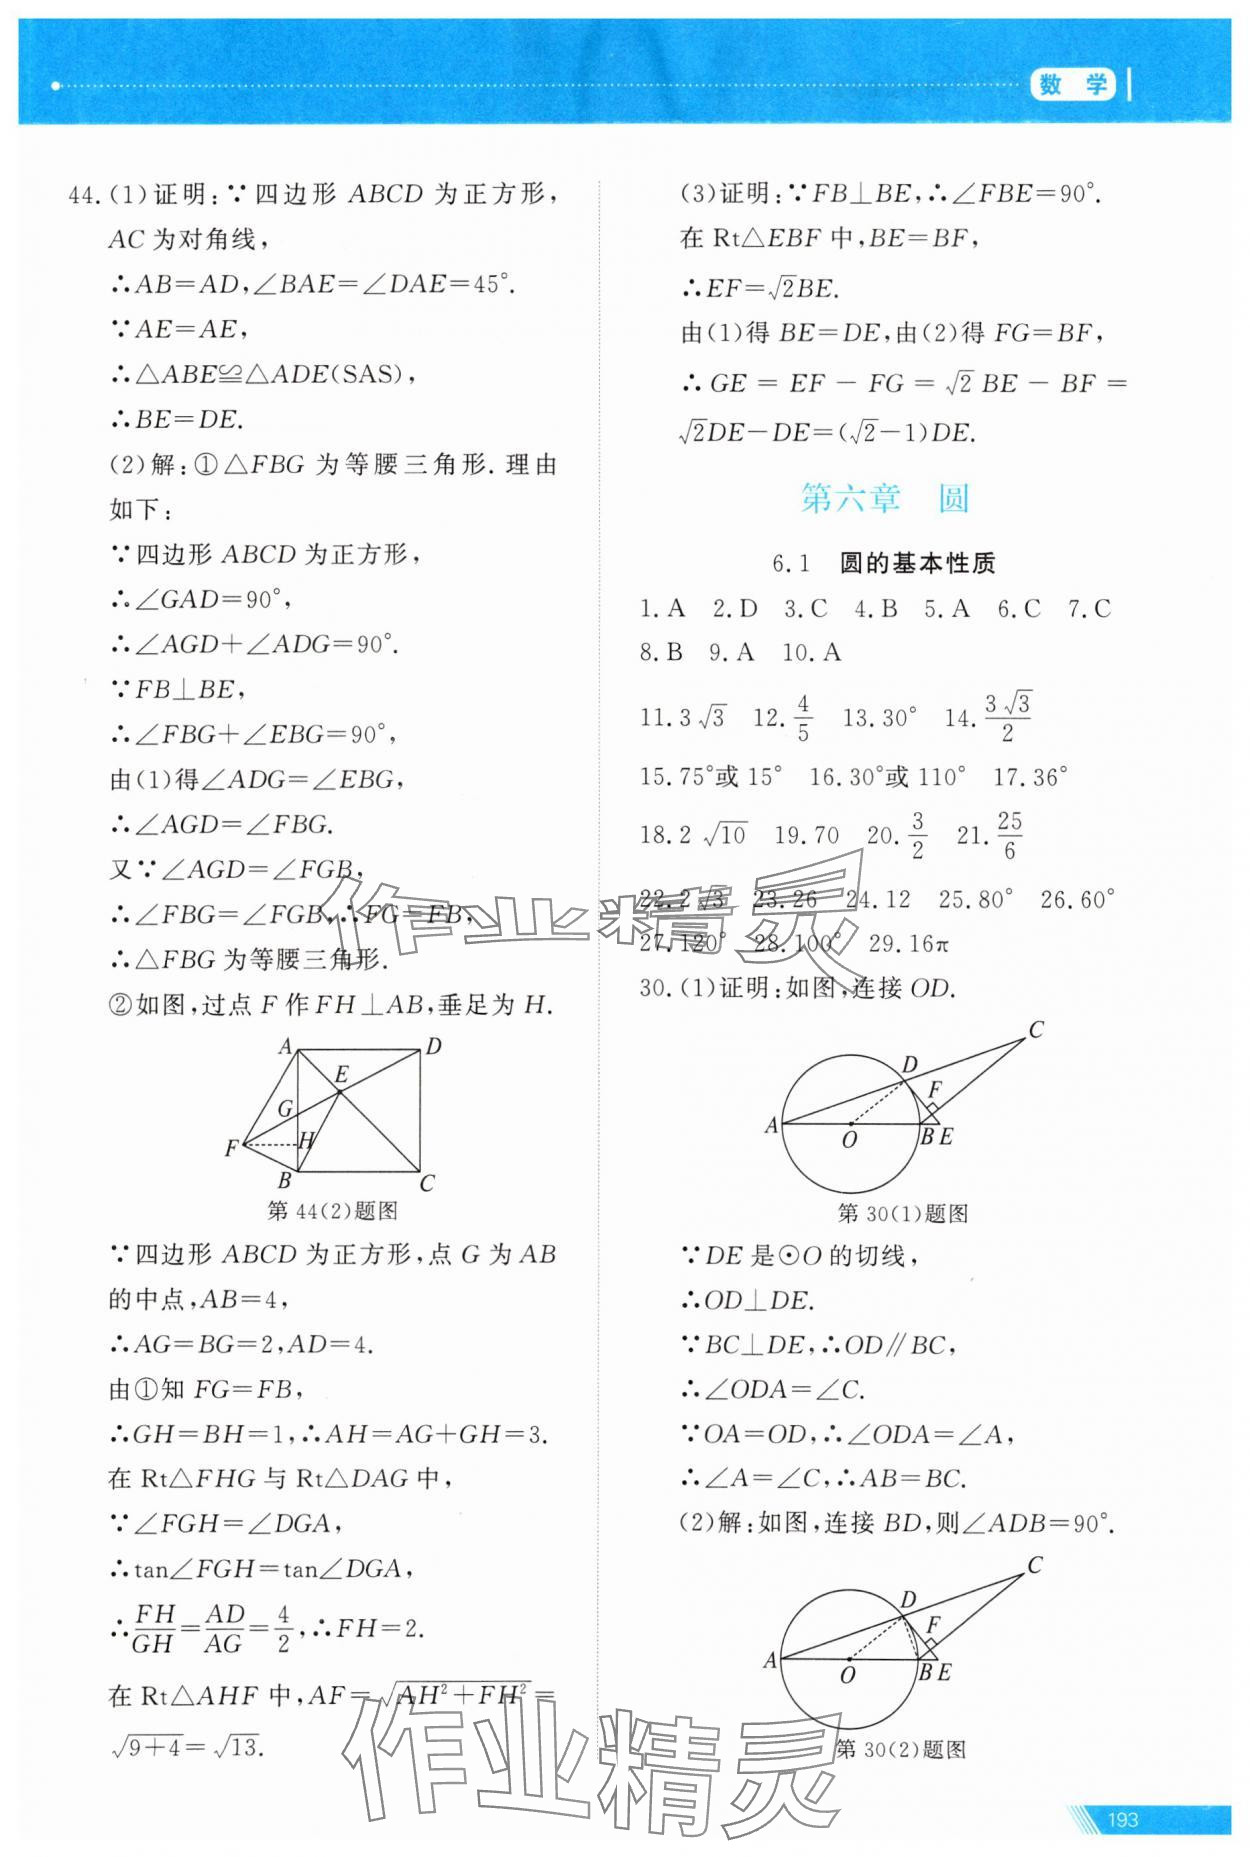 数 学
44.(1)证明:∵四边形 ABCD 为正方形,
AC 为对角线,
∴AB=AD,∠BAE=∠DAE=45°.
∵AE=AE,
∴△ABE≌△ADE(SAS),
∴BE=DE.
(2)解:①△FBG 为等腰三角形.理由
如下:
∵四边形 ABCD 为正方形,
∴∠GAD=90°,
∴∠AGD+∠ADG=90°.
∵FB⊥BE,
∴∠FBG+∠EBG=90°,
由(1)得∠ADG=∠EBG,
∴∠AGD=∠FBG.
又∵∠AGD=∠FGB,
∴∠FBG=∠FGB,∴FG=FB,
∴△FBG 为等腰三角形.
②如图,过点 F 作 FH⊥AB,垂足为 H.
A D
E
G
F H
B C
第 44(2)题图
∵四边形 ABCD 为正方形,点 G 为 AB
的中点,AB=4,
∴AG=BG=2,AD=4.
由①知 FG=FB,
∴GH=BH=1,∴AH=AG+GH=3.
在 Rt△FHG 与 Rt△DAG 中,
∵∠FGH=∠DGA,
∴tan∠FGH=tan∠DGA,
∴FH/GH=AD/AG=4/2,∴FH=2.
在 Rt△AHF 中,AF=√(AH²+FH²)=
√(9+4)=√13.
(3)证明:∵FB⊥BE,∴∠FBE=90°.
在 Rt△EBF 中,BE=BF,
∴EF=√2BE.
由(1)得 BE=DE,由(2)得 FG=BF,
∴GE=EF-FG=√2BE-BF=
√2DE-DE=(√2-1)DE.
第六章 圆
6.1 圆的基本性质
1.A 2.D 3.C 4.B 5.A 6.C 7.C
8.B 9.A 10.A
11.3√3 12.4/5 13.30° 14.3√3/2
15.75°或 15° 16.30°或 110° 17.36°
18.2√10 19.70 20.3/2 21.25/6
22.2√3 23.26 24.12 25.80° 26.60°
27.120° 28.100° 29.16π
30.(1)证明:如图,连接 OD.
C
D
F
A O B E
第 30(1)题图
∵DE 是⊙O 的切线,
∴OD⊥DE.
∵BC⊥DE,∴OD∥BC,
∴∠ODA=∠C.
∵OA=OD,∴∠ODA=∠A,
∴∠A=∠C,∴AB=BC.
(2)解:如图,连接 BD,则∠ADB=90°.
C
D
F
A O B E
第 30(2)题图
作业精灵
作业精灵
193